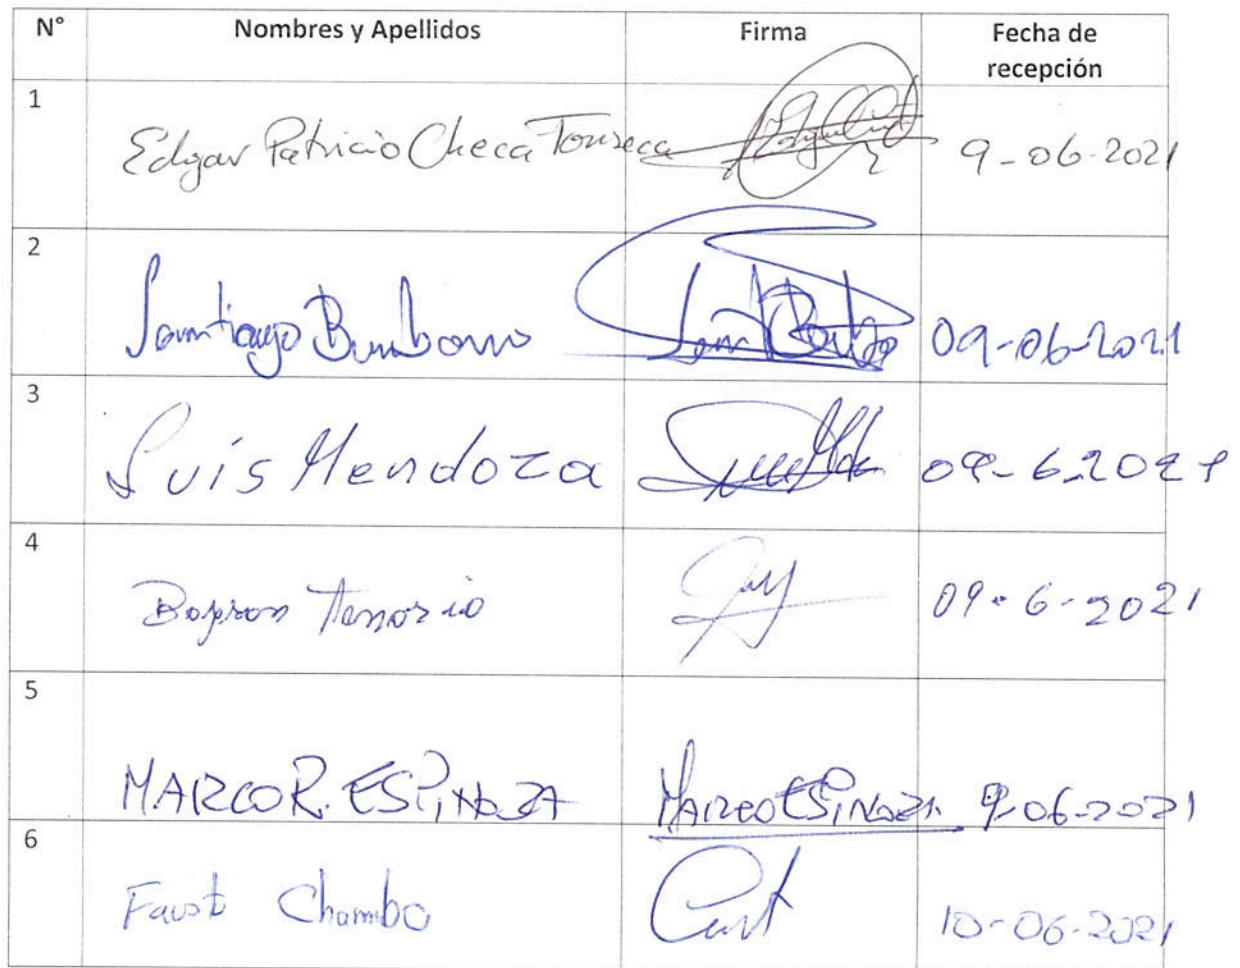 N° Nombres y Apellidos Firma Fecha de
recepción
1 Edgar Patricio Checa Fonseca 9-06-2021
2 Santiago 09-06-2021
3 Luis Mendoza 09-6-2021
4 Tenorio 09-6-2021
5 MARCO R. ESPINOZA MARCO ESPINOZA 9-06-2021
6 Fausto Chambo 10-06-2021